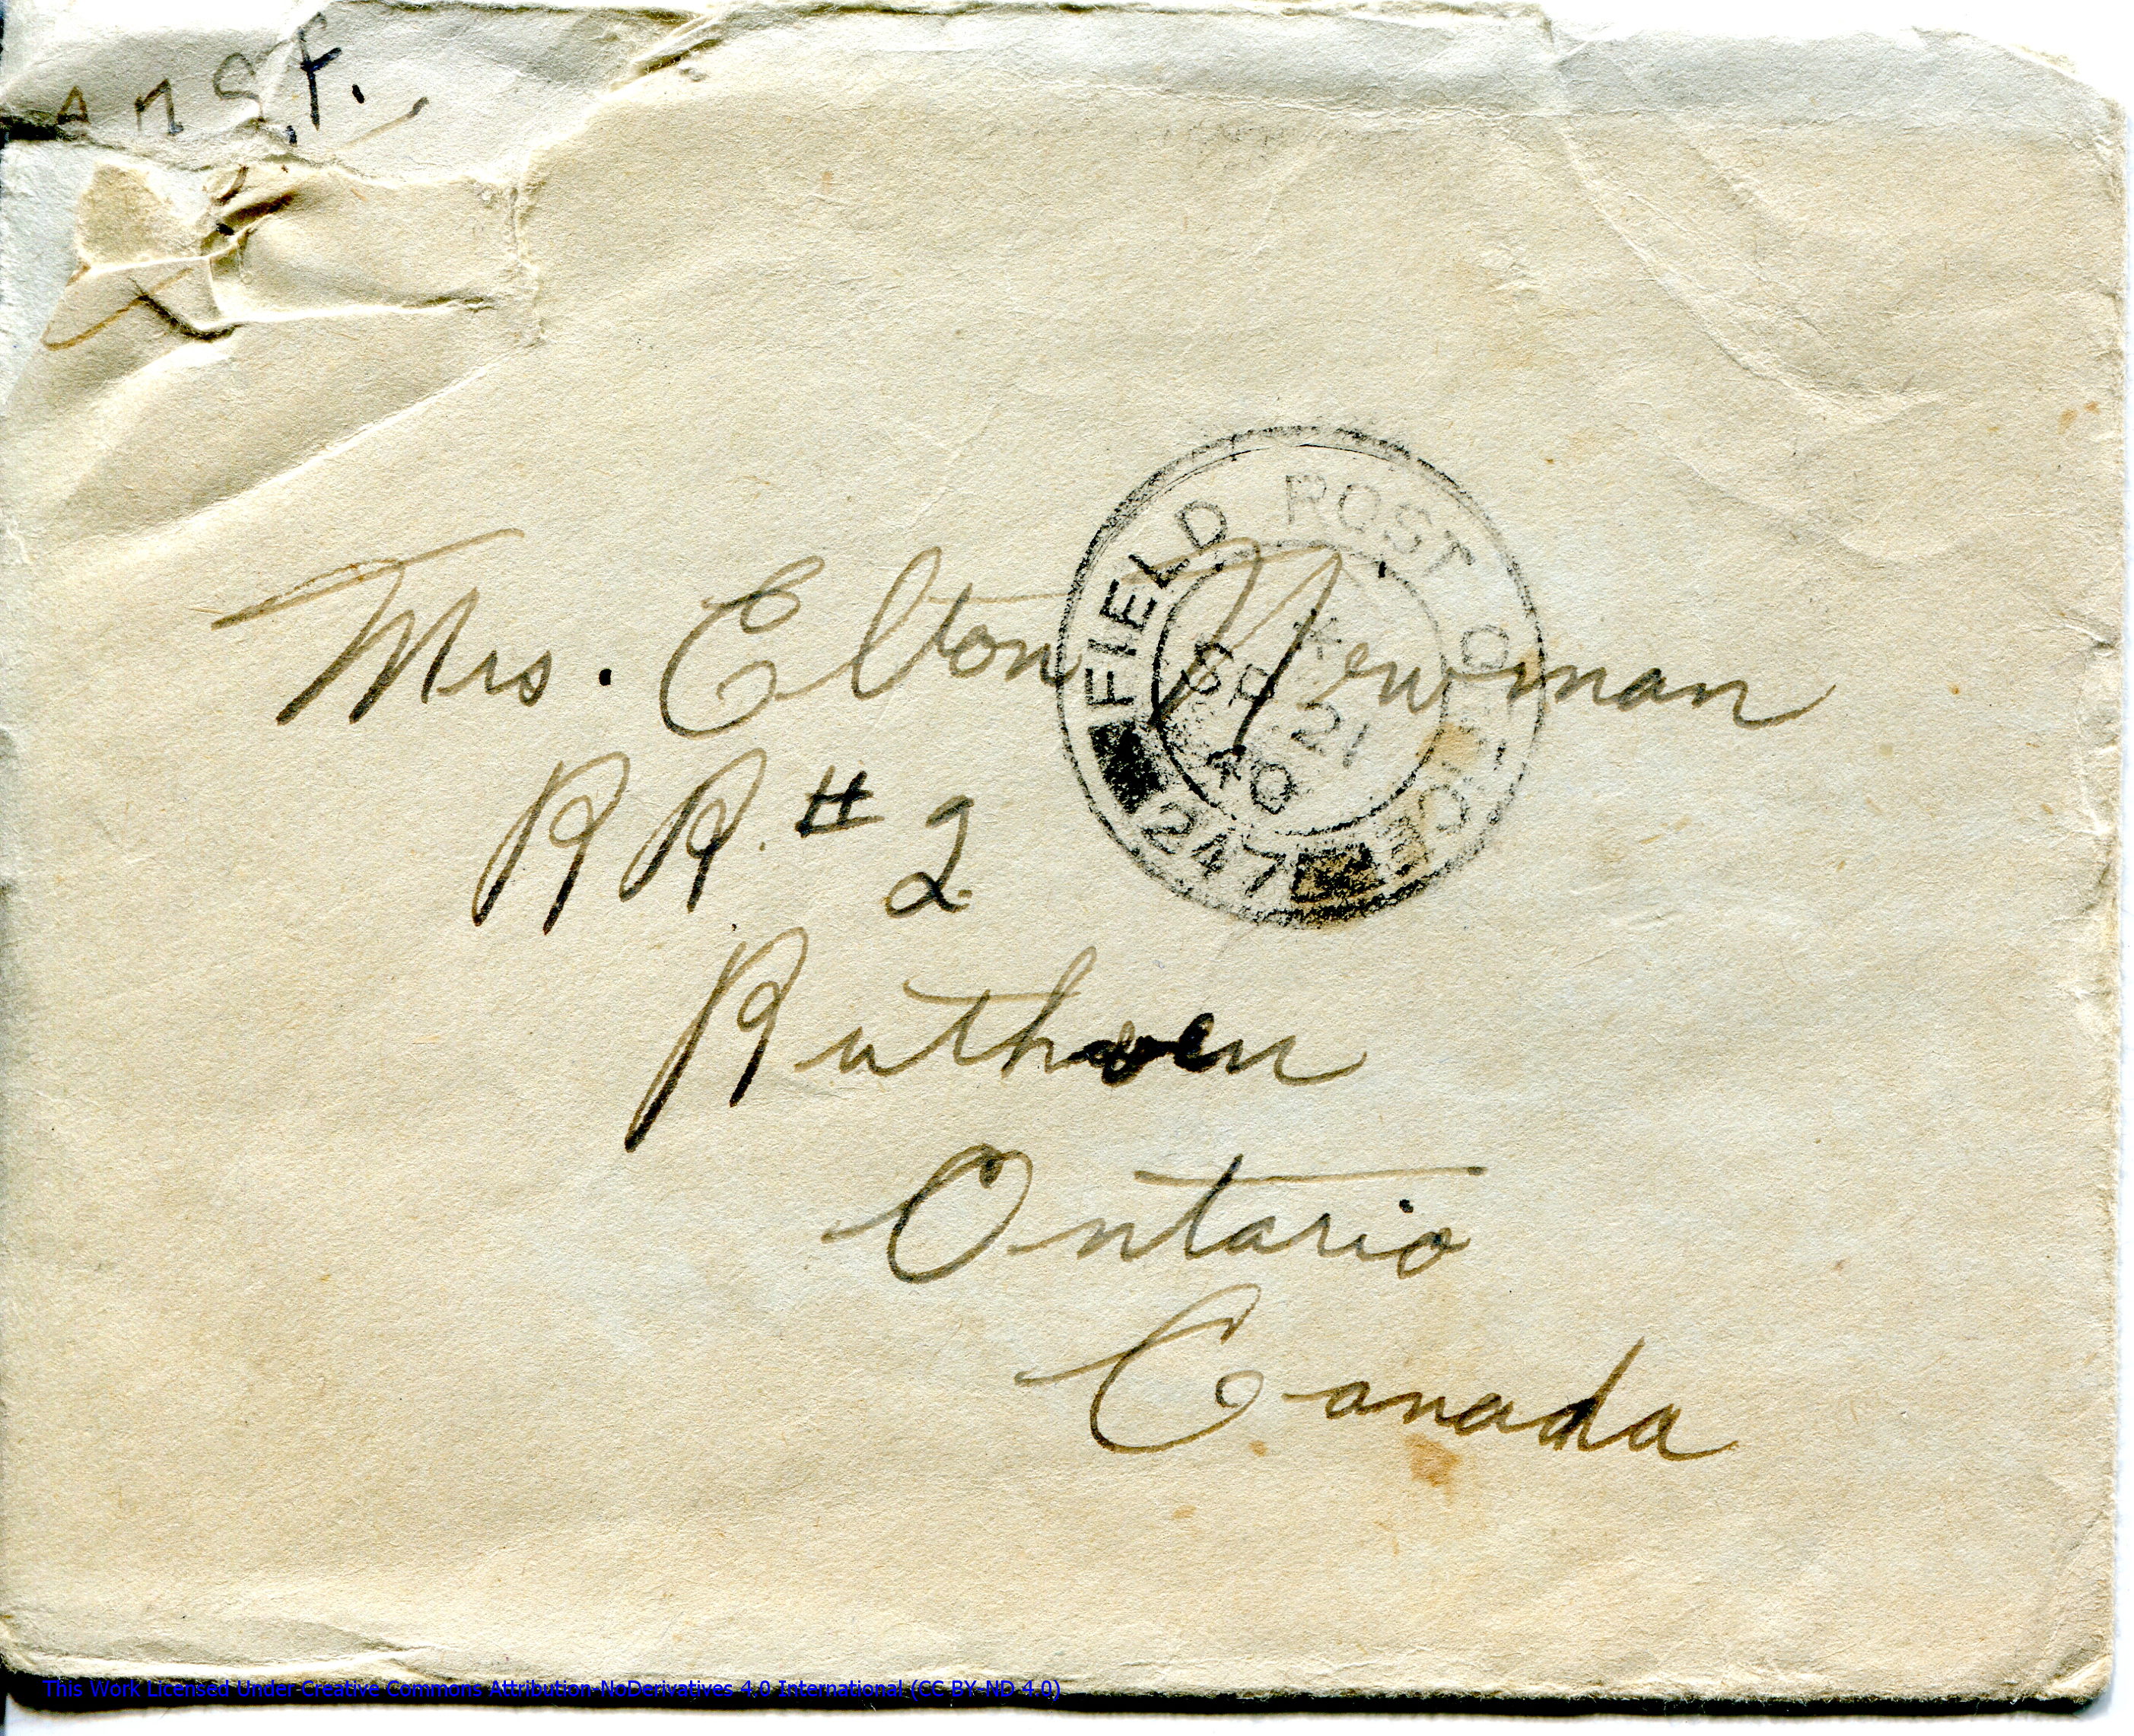 Mrs. Elton Newman
R R. # 2
Ruthven
Ontario
Canada
FIELD POST OFFICE
247
21
This Work Licensed Under Creative Commons Attribution-NoDerivatives 4.0 International (CC BY-ND 4.0)